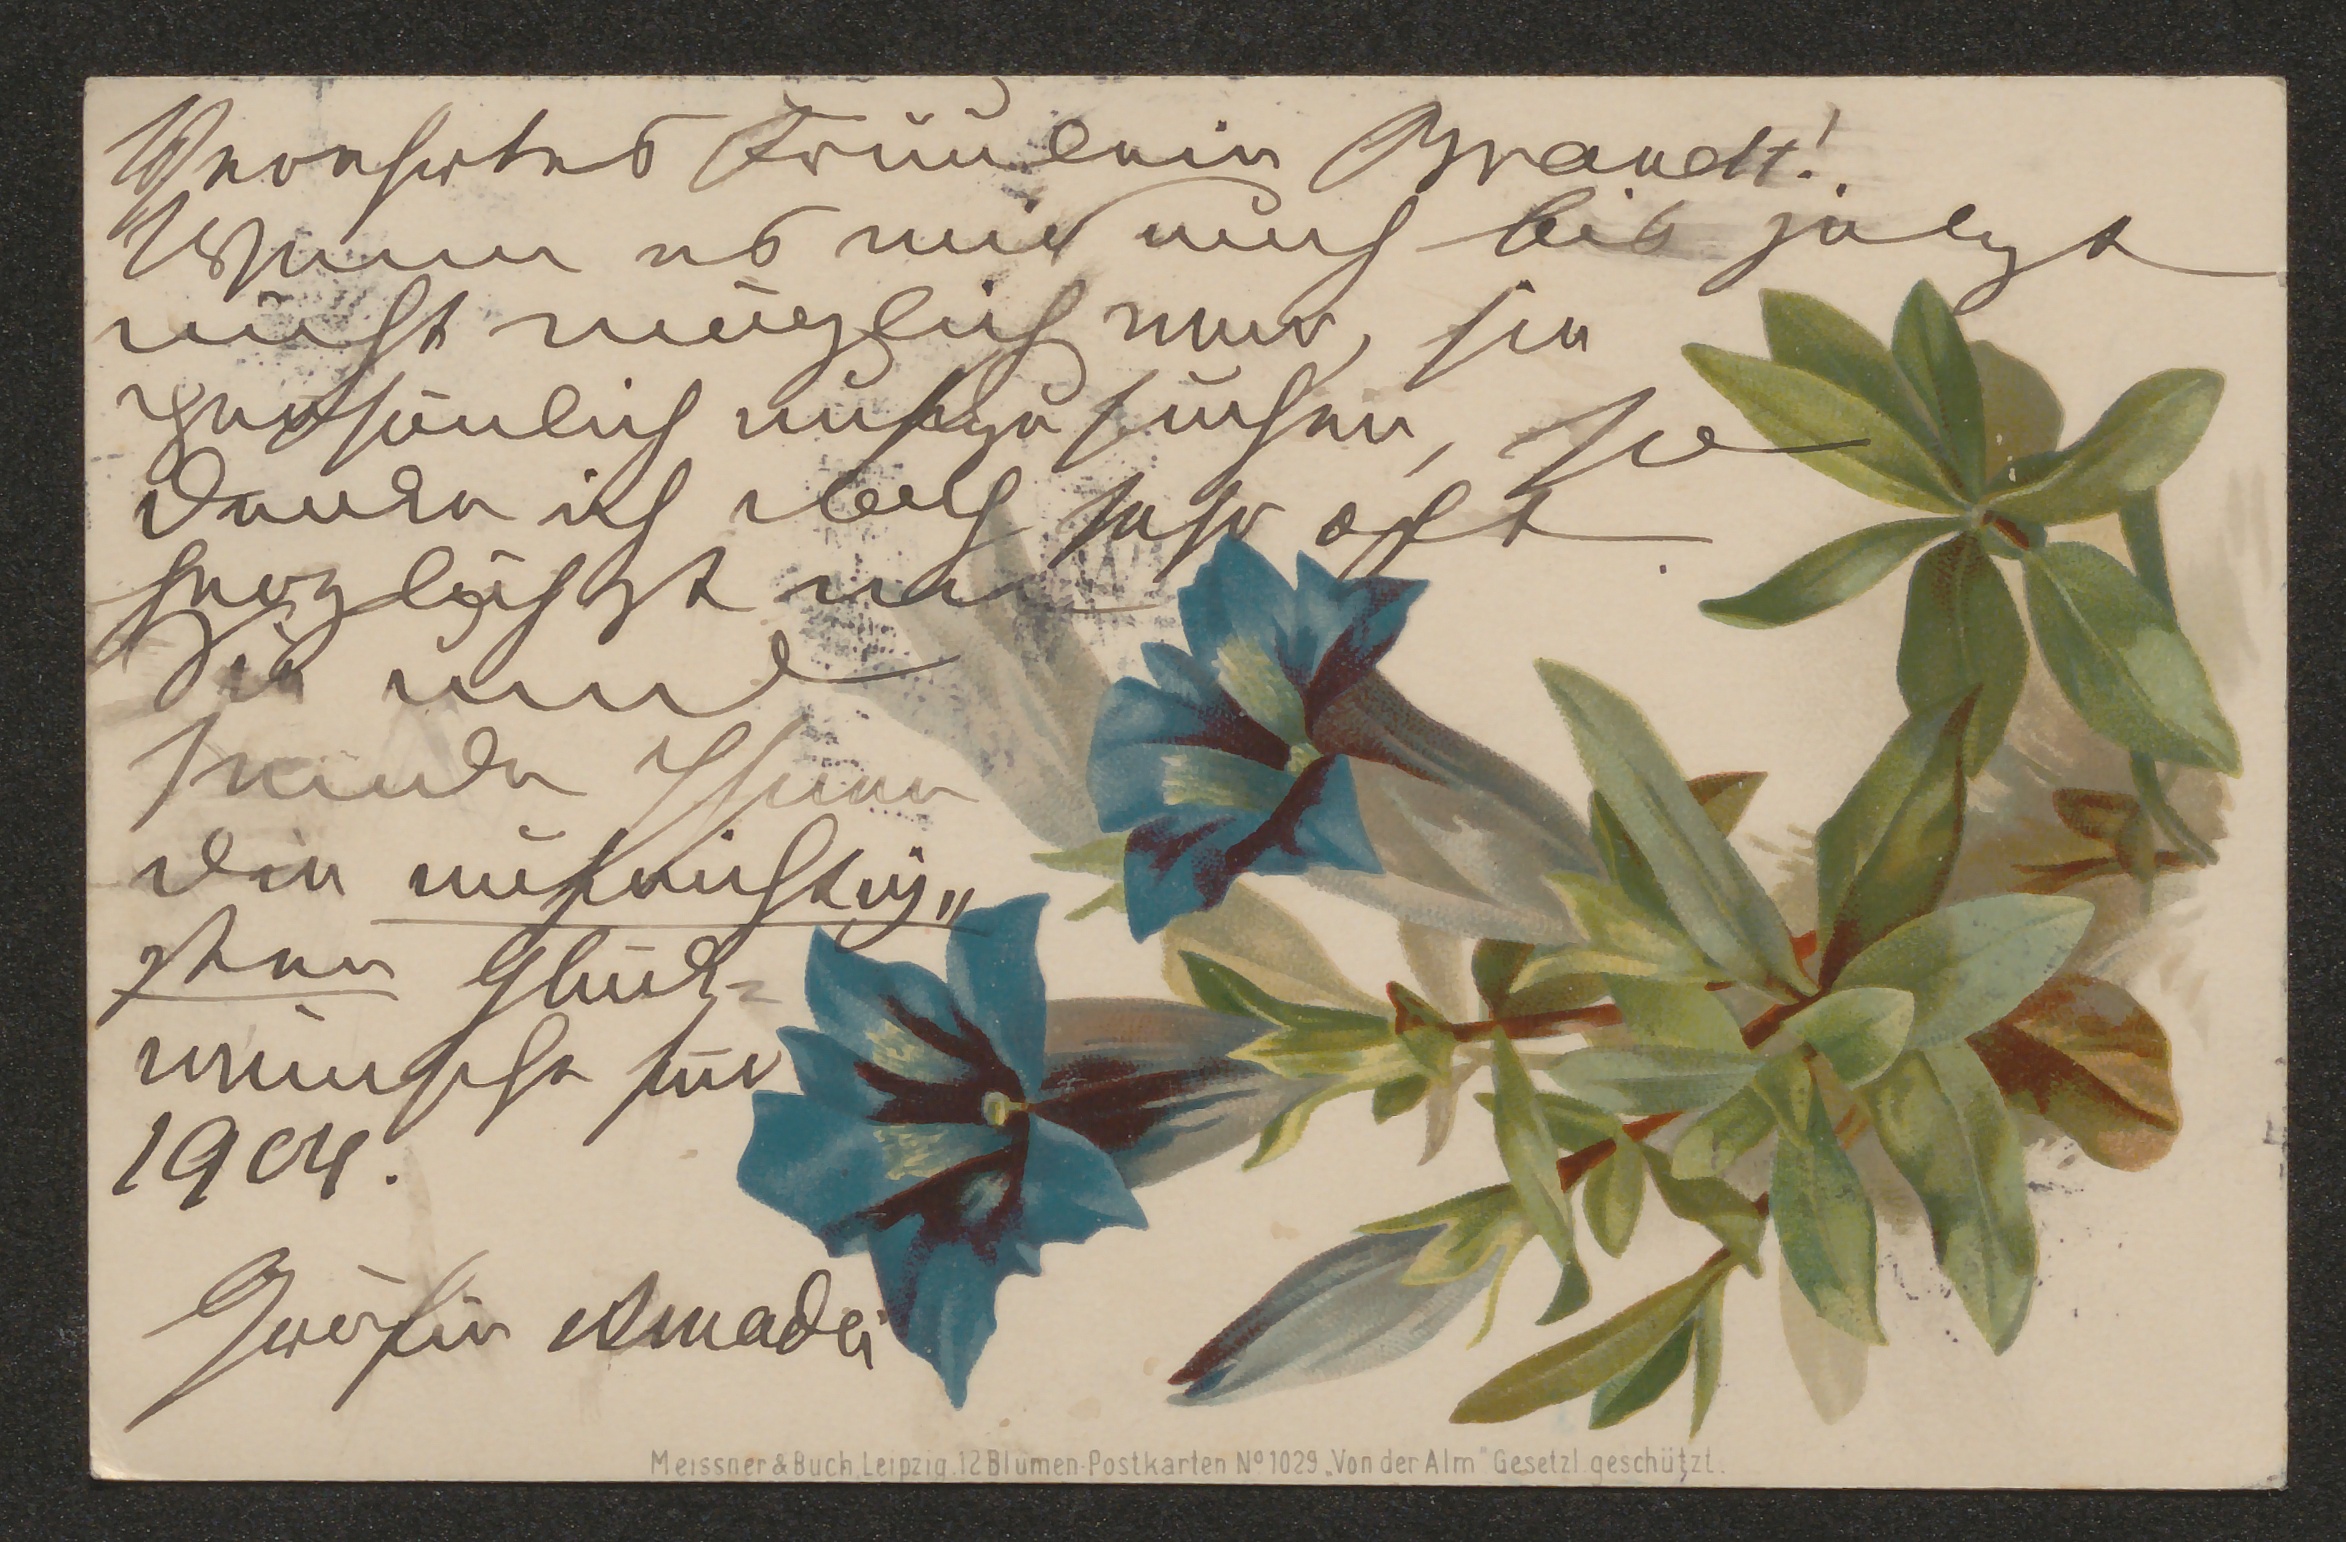 Verehrtes Fräulein Brandt!
Wenn es mir auch bis jetzt
nicht möglich war, sie
persönlich aufzusuchen, so
denke ich doch sehr oft
herzlichst an
Sie und
sende Ihnen
die aufrichtig„
sten Glück=
wünsche für
1904.
Gräfin Amadei
Meissner & Buch, Leipzig. 12 Blumen-Postkarten No 1029 „Von der Alm" Gesetzl. geschützt.